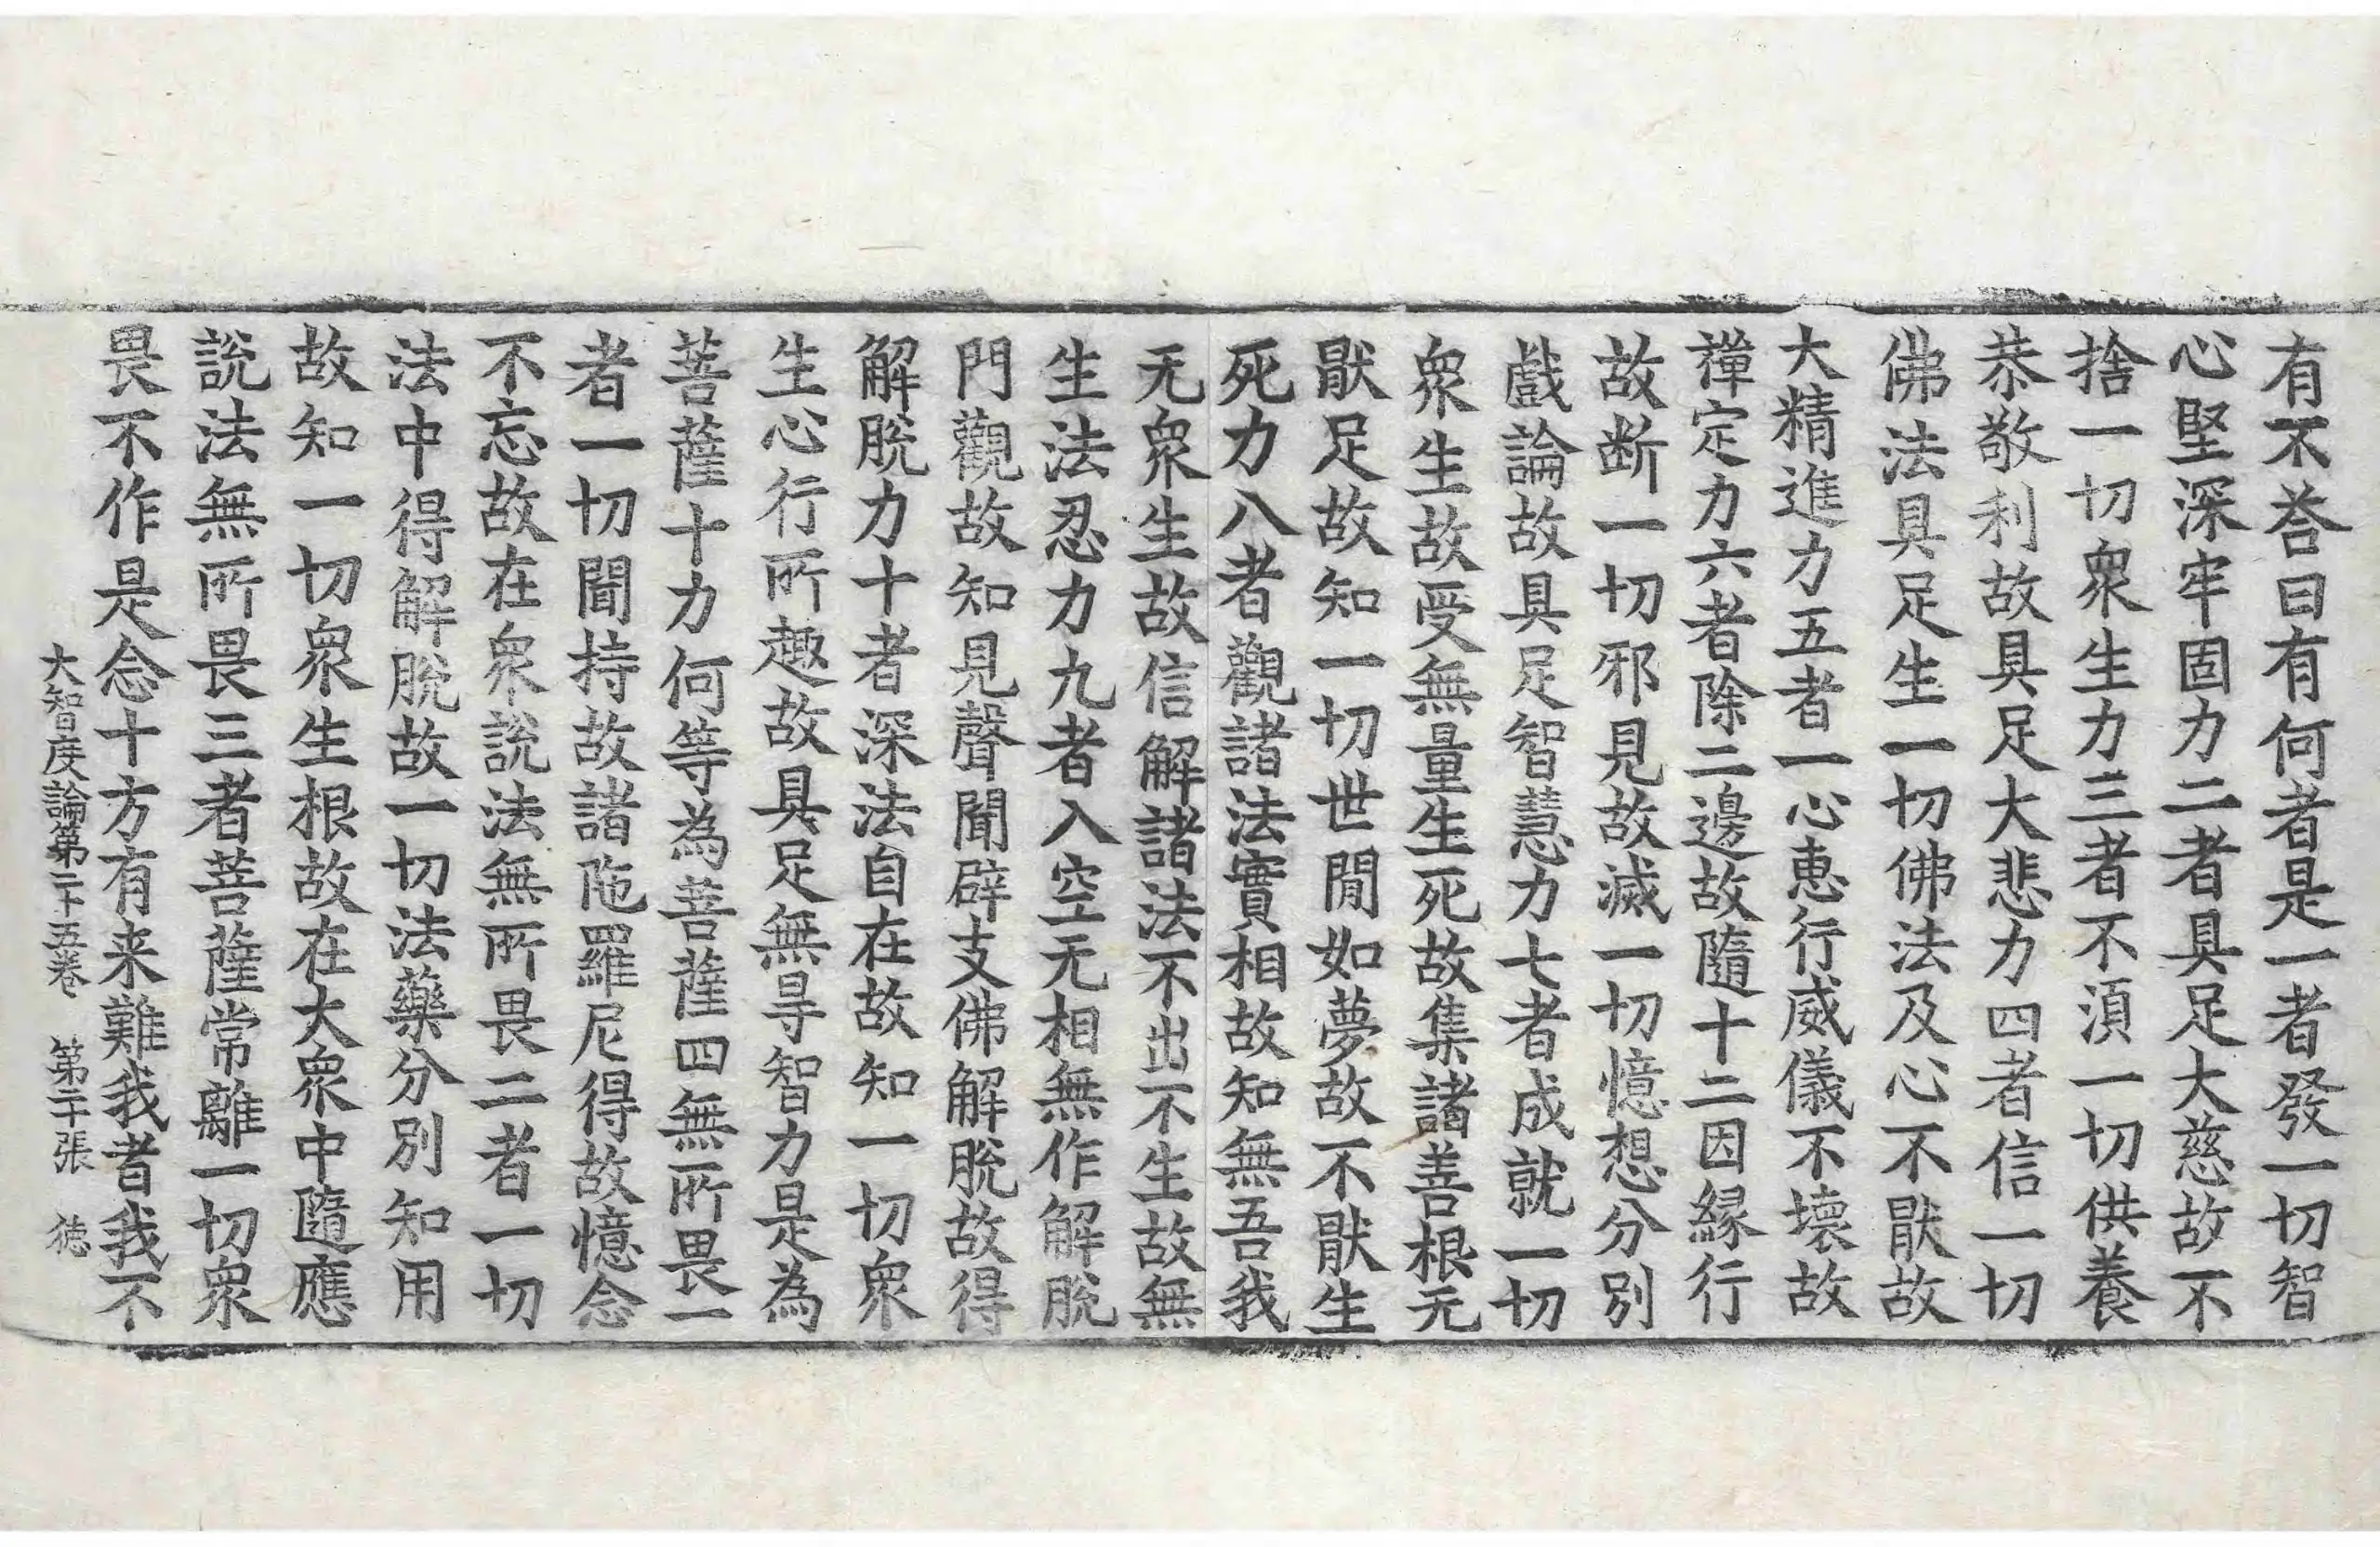 有不荅曰有何者是一者發一切智
心堅深牢固力二者具足大慈故不
捨一切衆生力三者不湏一切供養
恭敬利故具足大悲力四者信一切
佛法具足生一切佛法及心不猒故
大精進力五者一心恵行威儀不壞故
禪定力六者除二邊故隨十二因緣行
故断一切邪見故滅一切憶想分別
戲論故具足智慧力七者成就一切
衆生故受無量生死故集諸善根无
猒足故知一切世閒如夢故不猒生
死力八者觀諸法實相故知無吾我
无衆生故信解諸法不出不生故無
生法忍力九者入空无相無作解脫
門觀故知見聲聞辟支佛解脫故得
解脫力十者深法自在故知一切衆
生心行所趣故具足無㝵智力是為
菩薩十力何等為菩薩四無所畏一
者一切聞持故諸陁羅尼得故憶念
不忘故在衆說法無所畏二者一切
法中得解脫故一切法藥分別知用
故知一切衆生根故在大衆中隨應
說法無所畏三者菩薩常離一切衆
畏不作是念十方有来難我者我不
大智度論第二十五卷 第二十張 㹝